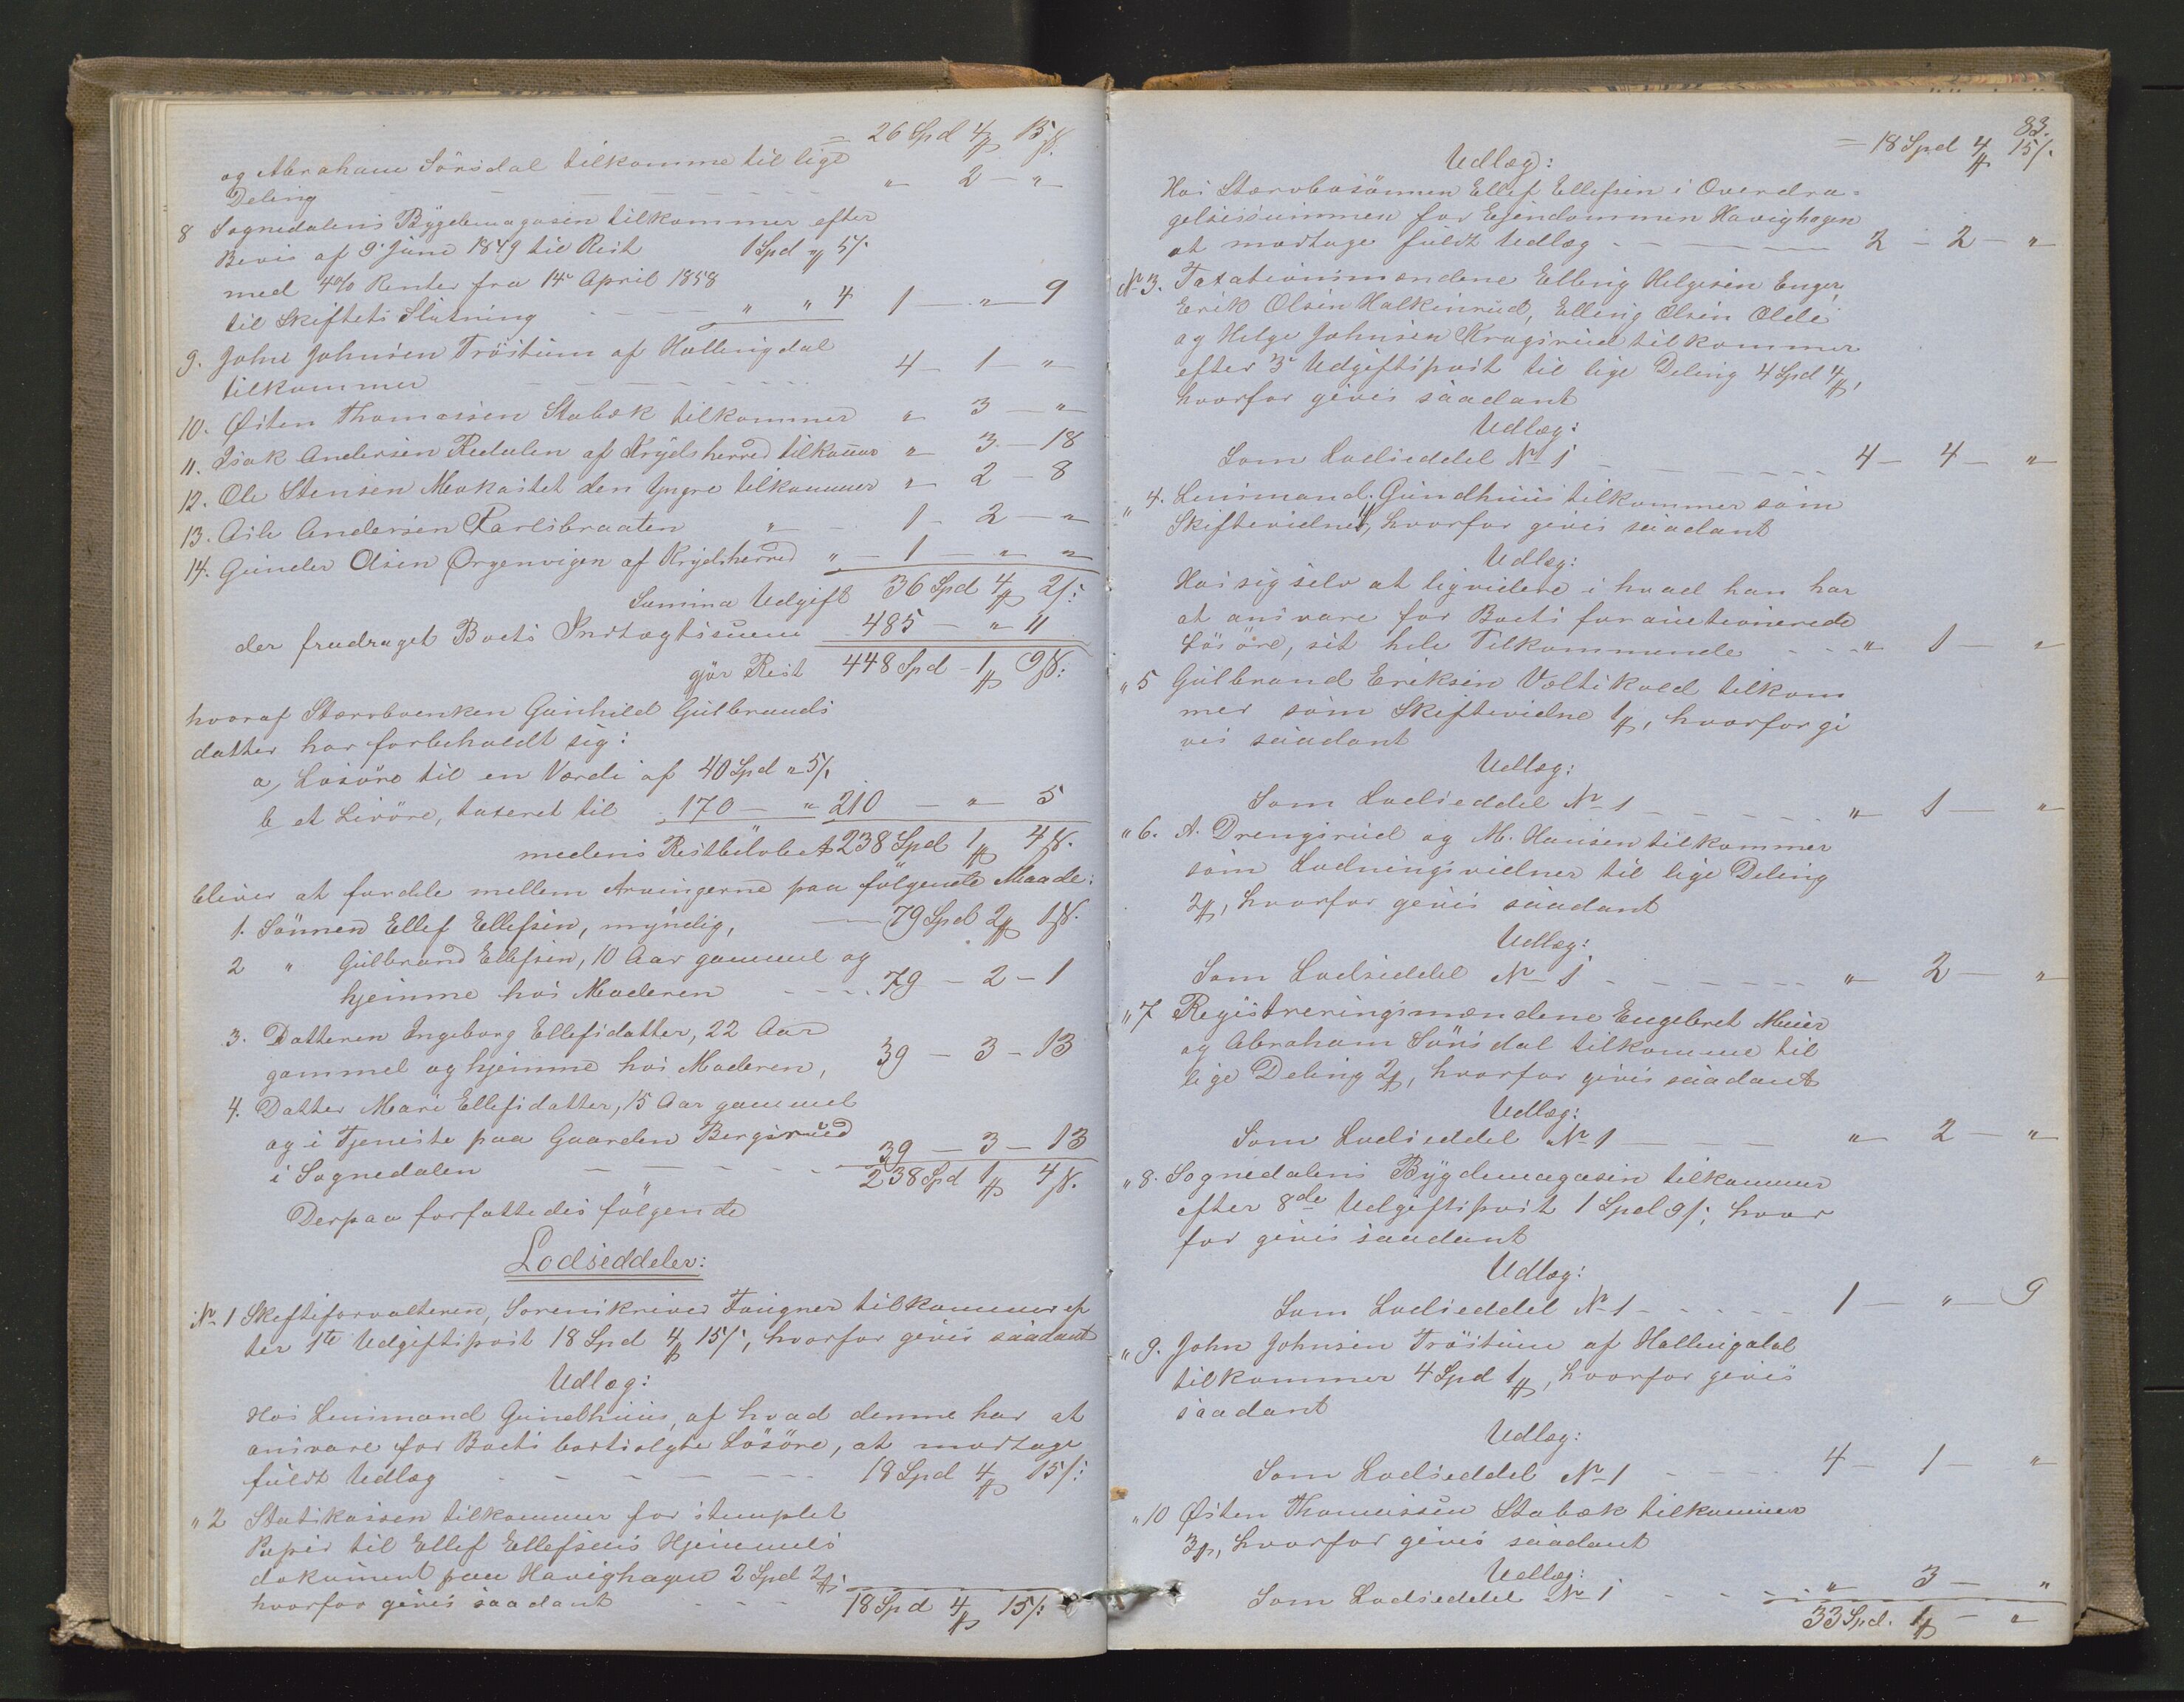 = 26 Spd 4 ₰ 15 ß.
og Abraham Sörsdal tilkomme til lige
Deling - - - - - - „ 2 - „
8 Sognedalens Bygdemagasin tilkommer efter
Bevis af 9' Juni 1849 til Rest 1 Spd „ 5ß.
med 4% Renter fra 14' April 1858
til Skiftets Slutning - - - „ „ 4 1 - „ - 9
9. John Johnsen Tröstum af Hallingdal
tilkommer - - - - - - 4 - 1 - „
10. Östen Thomassen Stabæk tilkommer „ 3 - „
11. Isak Andersen Redalen af Krydsherred tilkommer „ 3 - 18
12. Ole Stensen Mokastet den Yngre tilkommer „ 2 - 8
13. Asle Andersen Karlsbraaten „ - 1 - 2 - „
14. Gunder Olsen Örgenvigen af Krydsherred „ - 1 - „ „
Summa Udgift 36 Spd 4 ₰ 2ß:
der fradraget Boets Indtægtssum 485 - „ 11
gjör Rest 448 Spd - 1 ₰ 9ß:
hvoraf Stervboenken Gunhild Gulbrands
datter har forbeholdt sig:
a, Lösöre til en Værdi af 40 Spd „ 5ß.
b et Livöre, taxeret til 170 - „ 210 - „ 5
medens Restbelöbet 238 Spd 1 ₰ 4ß.
bliver at fordele mellem Arvingerne paa fölgende Maade:
1. Sönnen Ellef Ellefsen, myndig, - 79 Spd 2 ₰ 1ß.
2 „ Gulbrand Ellefsen, 10 Aar gammel og
hjemme hos Moderen - - - 79 - 2 - 1
3. Datteren Ingeborg Ellefsdatter, 22 Aar
gammel og hjemme hos Moderen, 39 - 3 - 13
4. Datter Mari Ellefsdatter, 15 Aar gammel
og i Tjeneste paa Gaarden Bergsrud
i Sognedalen - - - - - 39 - 3 - 13
238 Spd 1 ₰ 4ß.
Derpaa forfattedes fölgende
Lodseddeler:
No 1 Skifteforvalteren, Sorenskriver Faugner tilkommer ef
ter 1ste Udgiftspost 18 Spd 4 ₰ 15ß, hvorfor gives saadant
Udlæg:
Hos Lensmand Gundhuus, af hvad denne har at
ansvare for Boets bortsolgte Lösöre, at modtage
fuldt Udlæg - - - - - - 18 Spd 4 ₰ 15ß:
„ 2 Statskassen tilkommer for stemplet
Papir til Ellef Ellefsens Hjemmels
dokument paa Havighagen 2 Spd 2 ₰,
hvorfor gives saadant - - - 18 Spd 4 ₰ 15ß:
83.
= 18 Spd 4 ₰ 15ß.
Udlæg:
Hos Stervbosönnen Ellef Ellefsen i Overdra-
gelsessummen for Ejendommen Havighagen
at modtage fuldt Udlæg - - - - 2 - 2 - „
No 3. Taxationsmændene Elling Helgesen Enger,
Erik Olsen Halkinrud, Elling Olsen Olde
og Helge Johnsen Kragsrud tilkommer
efter 3' Udgiftspost til lige Deling 4 Spd 4 ₰,
hvorfor gives saadant
Udlæg:
Som Lodseddel No 1 - - - - - 4 - 4 - „
„ 4. Lensmand Gundhuus tilkommer som
Skiftevidne 1 ₰, hvorfor gives saadant
Udlæg:
Hos sig selv at ligvidere i hvad han har
at ansvare for Boets forauctionerede
Lösöre, sit hele Tilkommende - - „ 1 - „
„ 5 Gulbrand Eriksen Veltikold tilkom
mer som Skiftevidne 1 ₰, hvorfor gi
ves saadant
Udlæg:
Som Lodseddel No 1 - - - - - „ 1 - „
„ 6. A. Drengsrud og M. Hansen tilkommer
som Lodningsvidner til lige Deling
2 ₰, hvorfor gives saadant
Udlæg:
Som Lodseddel No 1 - - - - - „ 2 - „
„ 7 Registreringsmændene Engebret Meier
og Abraham Sörsdal tilkomme til
lige Deling 2 ₰, hvorfor gives saadant
Udlæg:
Som Lodseddel No 1 - - - - „ 2 - „
„ 8. Sognedalens Bygdemagasin tilkommer
efter 8de Udgiftspost 1 Spd 9ß, hvor
for gives saadant
Udlæg:
Som Lodseddel No 1 - - - - 1 - „ - 9
„ 9. John Johnsen Tröstum af Hallingdal
tilkommer 4 Spd 1 ₰, hvorfor gives
saadant
Udlæg:
Som Lodseddel No 1 - - - - 4 - 1 - „
„ 10 Östen Thomassen Stabæk tilkommer
3 ₰, hvorfor gives saadant
Udlæg:
Som Lodseddel No 1 - - - - „ 3 - „
33 Spd. 1 ₰ - „